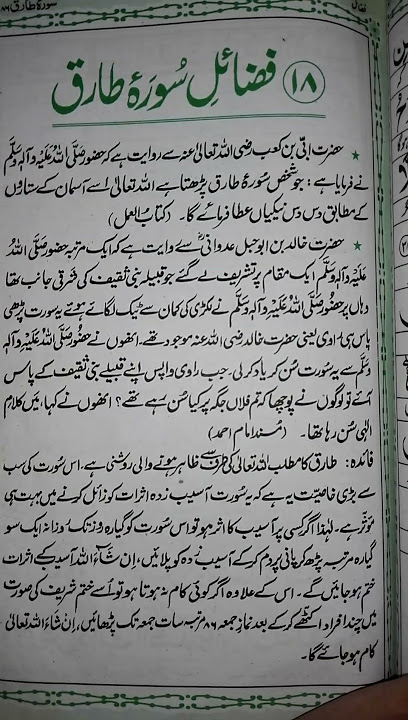 سورۃ طارق ۸۶
۱۸ فضائلِ سُورۂ طارق
★ حضرت اُبیّ بن کعب رضی اللہ تعالیٰ عنہ سے روایت ہے کہ حضور صَلَّی اللہُ عَلَیْہِ وَآلِہٖ وَسَلَّم
نے فرمایا ہے: جو شخص سُورۂ طارق پڑھتا ہے اللہ تعالیٰ اسے آسمان کے ستاروں
کے مطابق دس دس نیکیاں عطا فرمائے گا۔ (کتاب العمل)
★ حضرت خالد بن ابو جبل عدوانی سے روایت ہے کہ ایک مرتبہ حضور صَلَّی اللہُ
عَلَیْہِ وَآلِہٖ وَسَلَّم ایک مقام پر تشریف لے گئے جو قبیلہ بنی ثقیف کی شرقی جانب تھا
وہاں پر حضور صَلَّی اللہُ عَلَیْہِ وَآلِہٖ وَسَلَّم نے لکڑی کی کمان سے ٹیک لگائے ہوئے یہ سورت پڑھی
پاس ہی راوی یعنی حضرت خالد رضی اللہ عنہ موجود تھے۔ انھوں نے حضور صَلَّی اللہُ عَلَیْہِ وَآلِہٖ
وَسَلَّم سے یہ سورت سُن کر یاد کر لی۔ جب راوی واپس اپنے قبیلے بنی ثقیف کے پاس
آئے تو لوگوں نے پوچھا کہ تم فلاں جگہ پر کیا سُن رہے تھے؟ انھوں نے کہا، میں کلامِ
الٰہی سُن رہا تھا۔ (مُسند امام احمد)
فائدہ: طارق کا مطلب اللہ تعالیٰ کی طرف سے ظاہر ہونے والی روشنی ہے۔ اس سُورت کی سب
سے بڑی خاصیّت یہ ہے کہ یہ سُورت آسیب زدہ اثرات کو زائل کرنے میں بہت ہی
مُؤثّر ہے۔ لہٰذا اگر کسی پر آسیب کا اثر ہو تو اس سُورت کو گیارہ روز تک روزانہ ایک سو
گیارہ مرتبہ پڑھ کر پانی پر دم کر کے آسیب زدہ کو پلائیں، اِن شَاءَ اللہ آسیب کے اثرات
ختم ہو جائیں گے۔ اس کے علاوہ اگر کوئی کام نہ ہوتا ہو تو اُسے ختم شریف کی صورت
میں چند افراد اکٹھے کر کے بعد نمازِ جمعہ ۸۶ مرتبہ سات جمعہ تک پڑھائیں، اِن شَاءَ اللہ تعالیٰ
کام ہو جائے گا۔